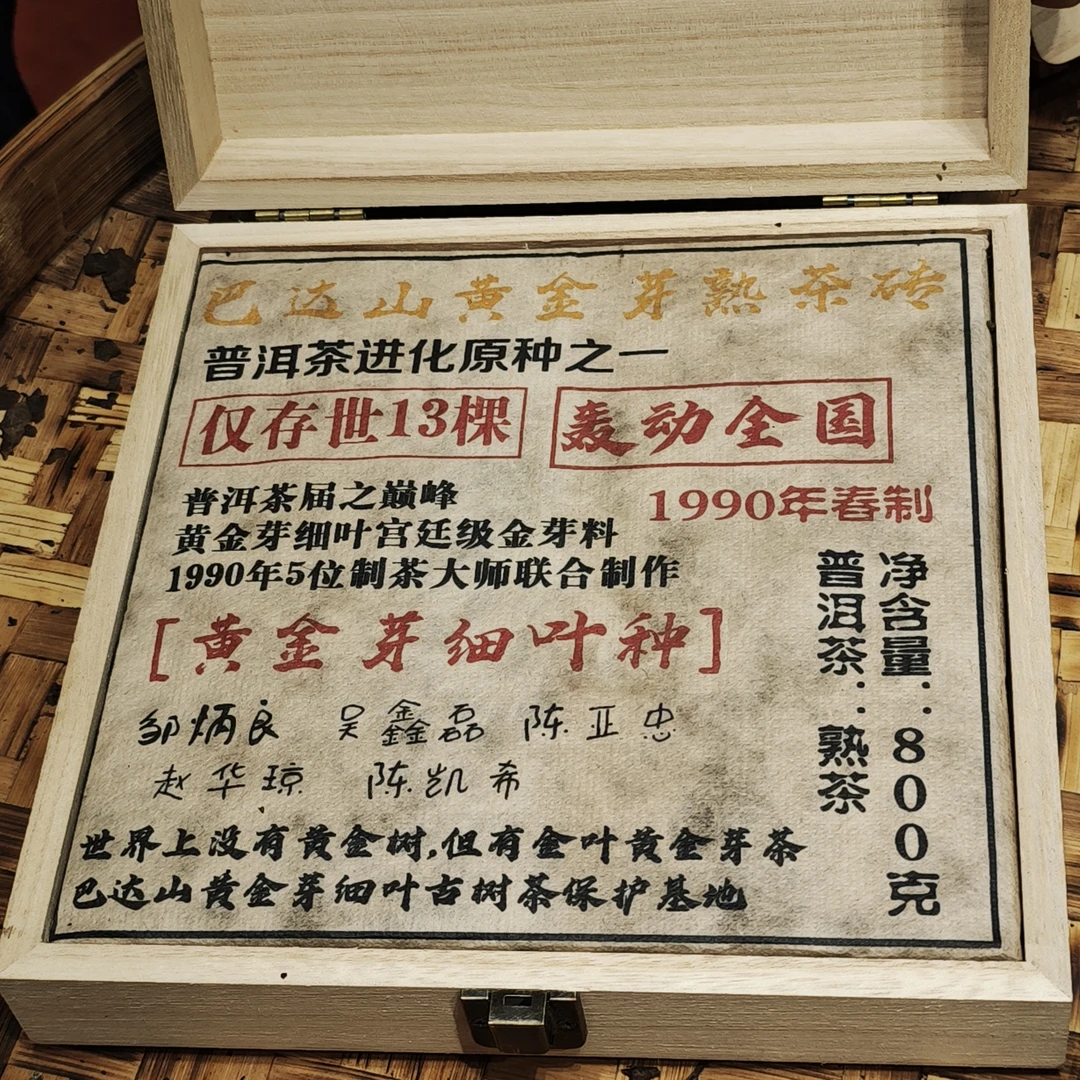 巴达山黄金芽熟茶砖
普洱茶进化原种之一
仅存世13棵
轰动全国
普洱茶届之巅峰
黄金芽细叶宫廷级金芽料
1990年5位制茶大师联合制作
1990年春制
[黄金芽细叶种]
邹炳良 吴鑫磊 陈亚忠
赵华琼 陈凯希
世界上没有黄金树,但有金叶黄金芽茶
巴达山黄金芽细叶古树茶保护基地
净含量:800克
普洱茶:熟茶